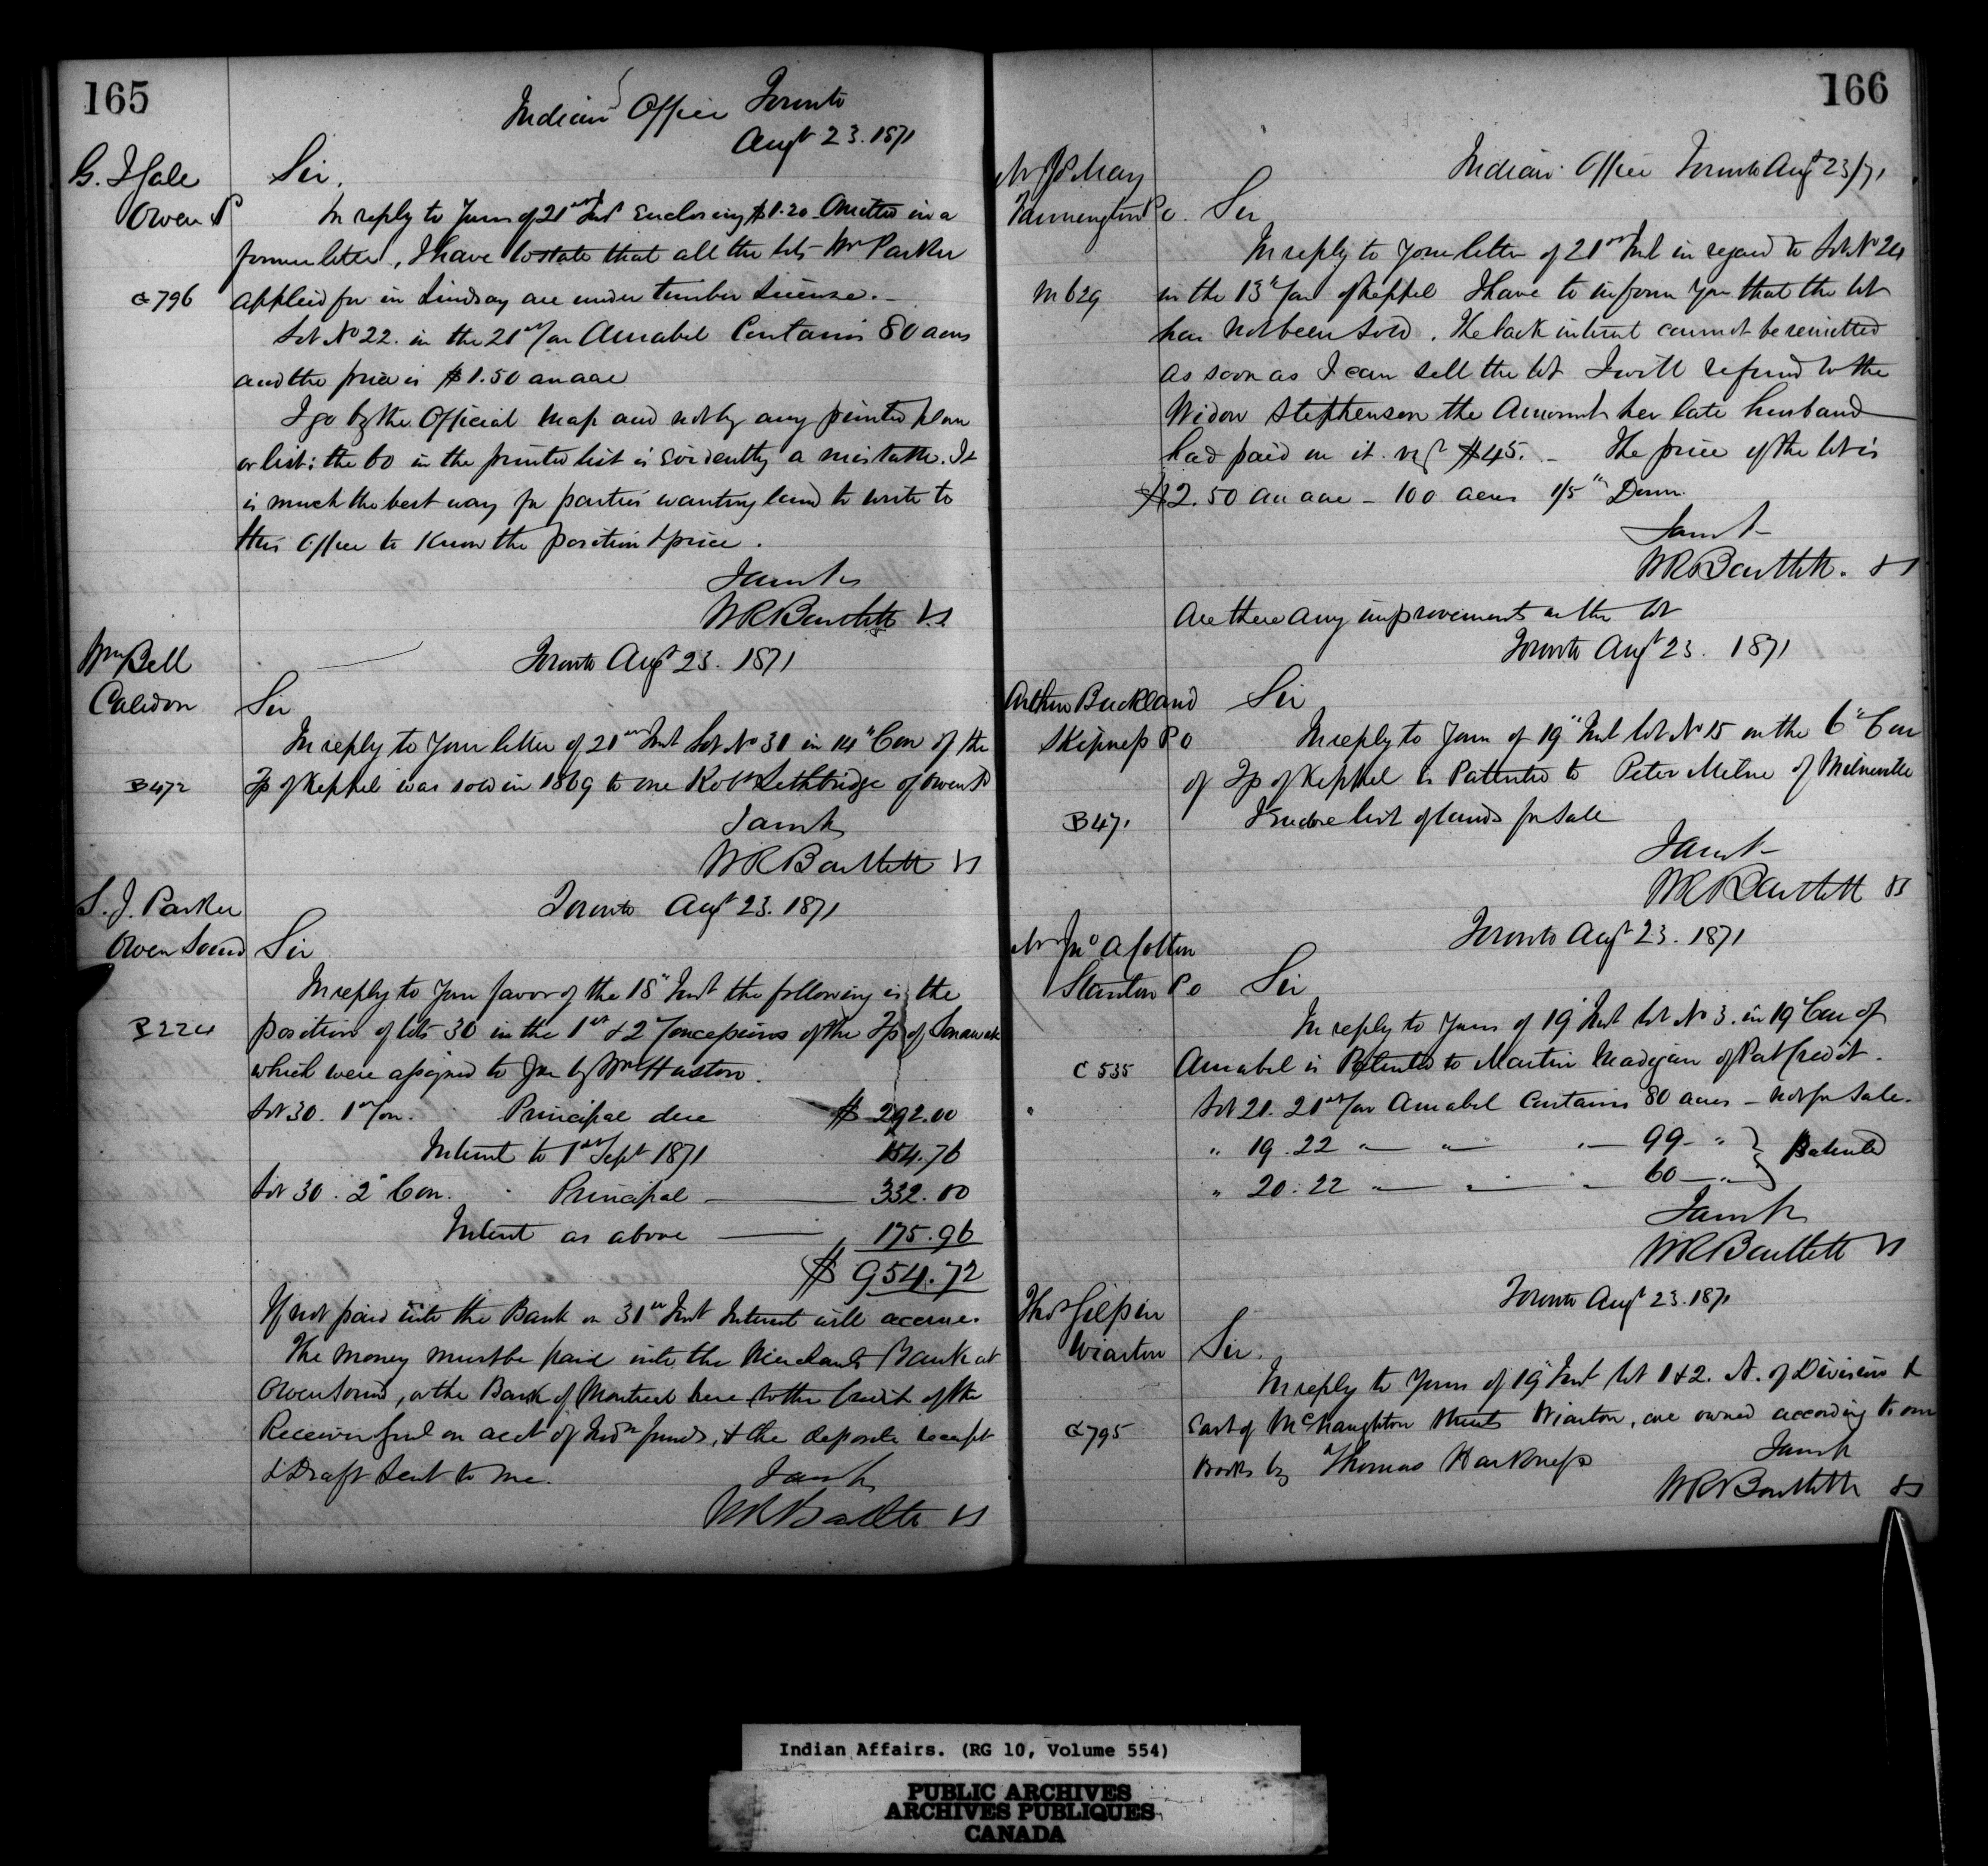 165
Indian Office Toronto
Augt 23. 1871
G. J. Gale
Owen S
G 796
Sir,
In reply to yours of 21st Inst enclosing $1.20 omitted in a
former letter, I have to state that all the lots Mr Parker
applied for in Lindsay are under timber License.-
Lot No 22. in the 21st Con Amabel Contains 80 acres
and the price is $1.50 an acre
I go by the Official Map and not by any printed plan
or list: the 60 in the printed list is evidently a mistake. It
is much the best way for parties wanting land to write to
this Office to Know the position & price.
I am &c
WR Bartlett VS
Wm Bell
Caledon
B472
Toronto Augt 23. 1871
Sir
In reply to your letter of 21st Inst Lot No 31 in 14" Con of the
Tp of Keppel was sold in 1869 to one Robt Lethbridge of Owen Sd
I am &c
WR Bartlett VS
S. J. Parker
Owen Sound
P224
Toronto Augt 23. 1871
Sir
In reply to your favor of the 18" Inst the following is the
position of lots 30 in the 1st & 2" Concessions of the Tp of Sarawak
which were assigned to you by Wm Huston.
Lot 30. 1st Con. Principal due $292.00
Interest to 1st Sept 1871 154.76
Lot 30. 2" Con. Principal 332.00
Interest as above 175.96
$954.72
If not paid into the Bank on 31st Inst Interest will accrue.
The money must be paid into the Merchants Bank at
Owen Sound, or the Bank of Montreal here to the Credit of the
Receiver Genl on acct of Indn funds, & the deposit receipt
& Draft sent to me.
I am &c
WR Bartlett VS
166
Indian Office Toronto Augt 23/71
Mr May
P.O.
M 629
Sir
In reply to your letter of 21st Inst in regard to Lot No 24
in the 13" Con of Keppel I have to inform you that the lot
has not been sold. The back interest cannot be remitted
As soon as I can sell the lot I will refund to the
Widow Stephenson the Amount her late husband
had paid on it vizt $45. - The price of the lot is
$2.50 an acre - 100 acres 1/5" Down.
I am &c
WR Bartlett. VS
Are there any improvements on the lot
Toronto Augt 23. 1871
Arthur Buckland
Skipness P O
B471
Sir
In reply to yours of 19" Inst lot No 15 on the 6" Con
of Tp of Keppel is Patented to Peter Milne of Milneville
I enclose list of lands for sale
I am &c
WR Bartlett VS
Toronto Augt 23. 1871
Mr Jno A Colton
Stanton P O
C 535
Sir
In reply to yours of 19" Inst lot No 3. in 19" Con of
Amabel is Patented to Martin Madigan of Pat Credit.
Lot 21. 21st Con Amabel Contains 80 acres - not for sale.
" 19. 22 — " — " — 99 — " } Patented
" 20. 22 — " — " — 60 — "
I am &c
WR Bartlett VS
Toronto Augt 23. 1871
Thos Gilpin
Wiarton
G795
Sir.
In reply to yours of 19" Inst lot 1 & 2. N. of Division &
East of McNaughton streets Wiarton, are owned according to our
books by Thomas Harkness
I am &c
WR Bartlett VS
Indian Affairs. (RG 10, Volume 554)
PUBLIC ARCHIVES
ARCHIVES PUBLIQUES
CANADA